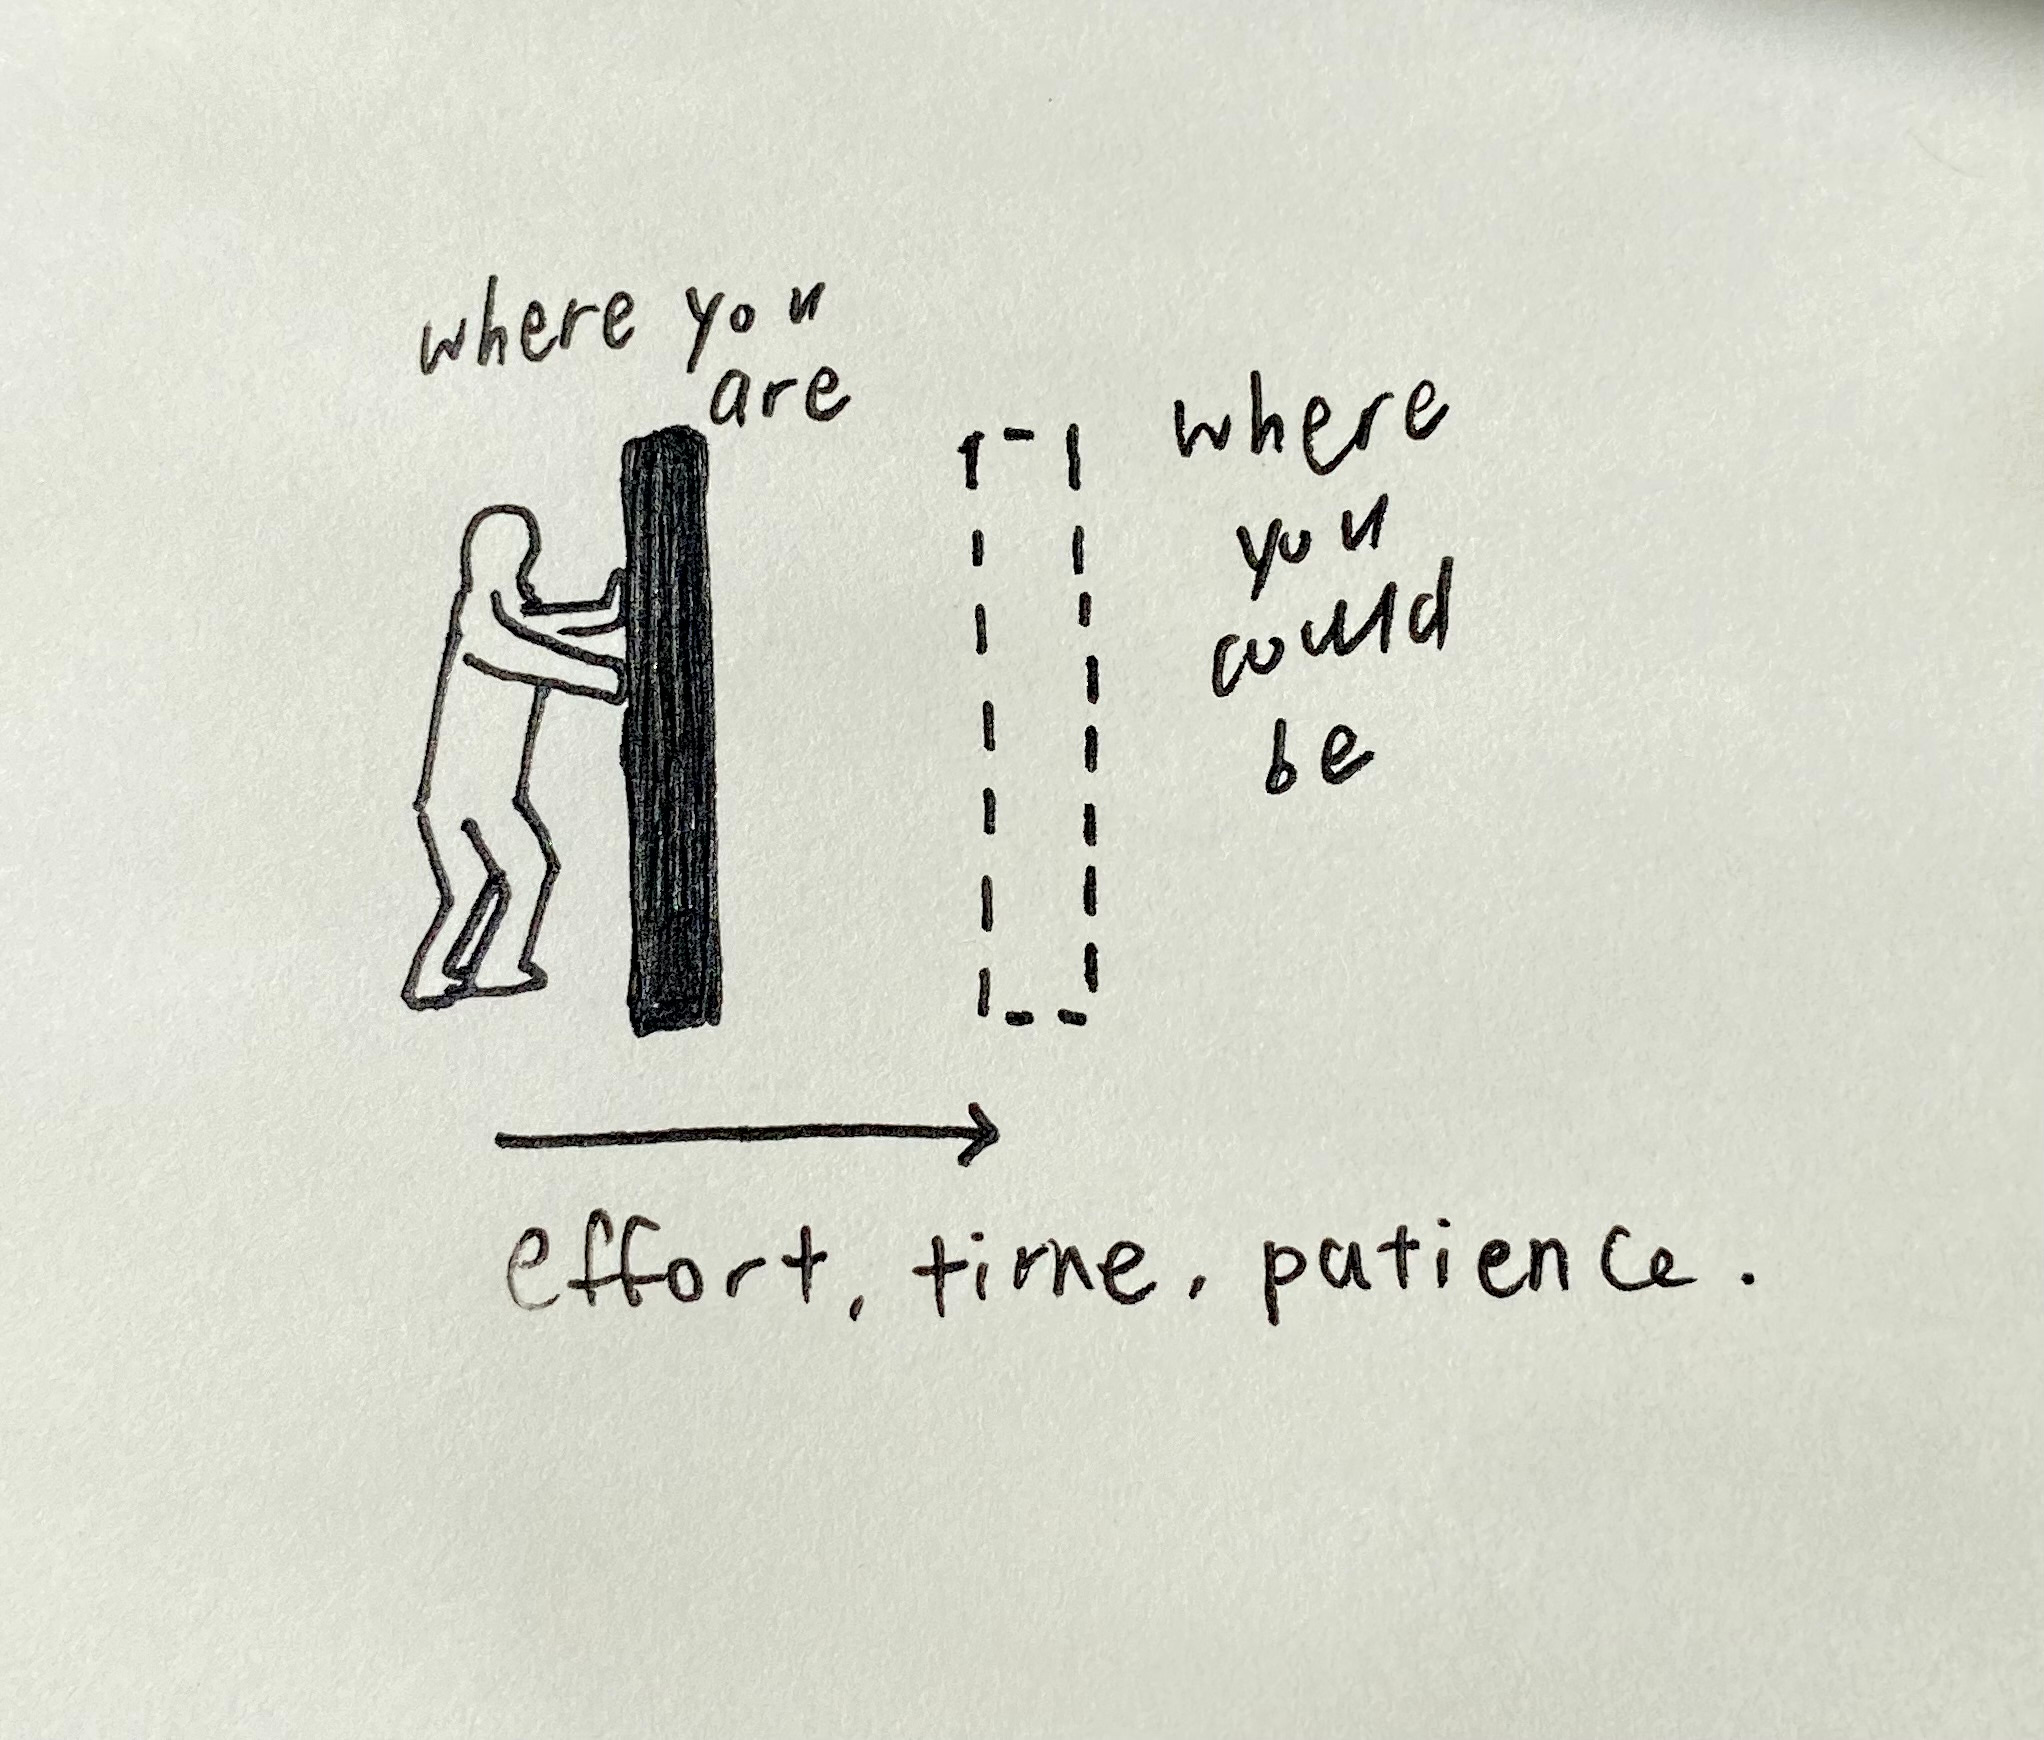 where you
are
where
you
could
be
effort, time, patience.